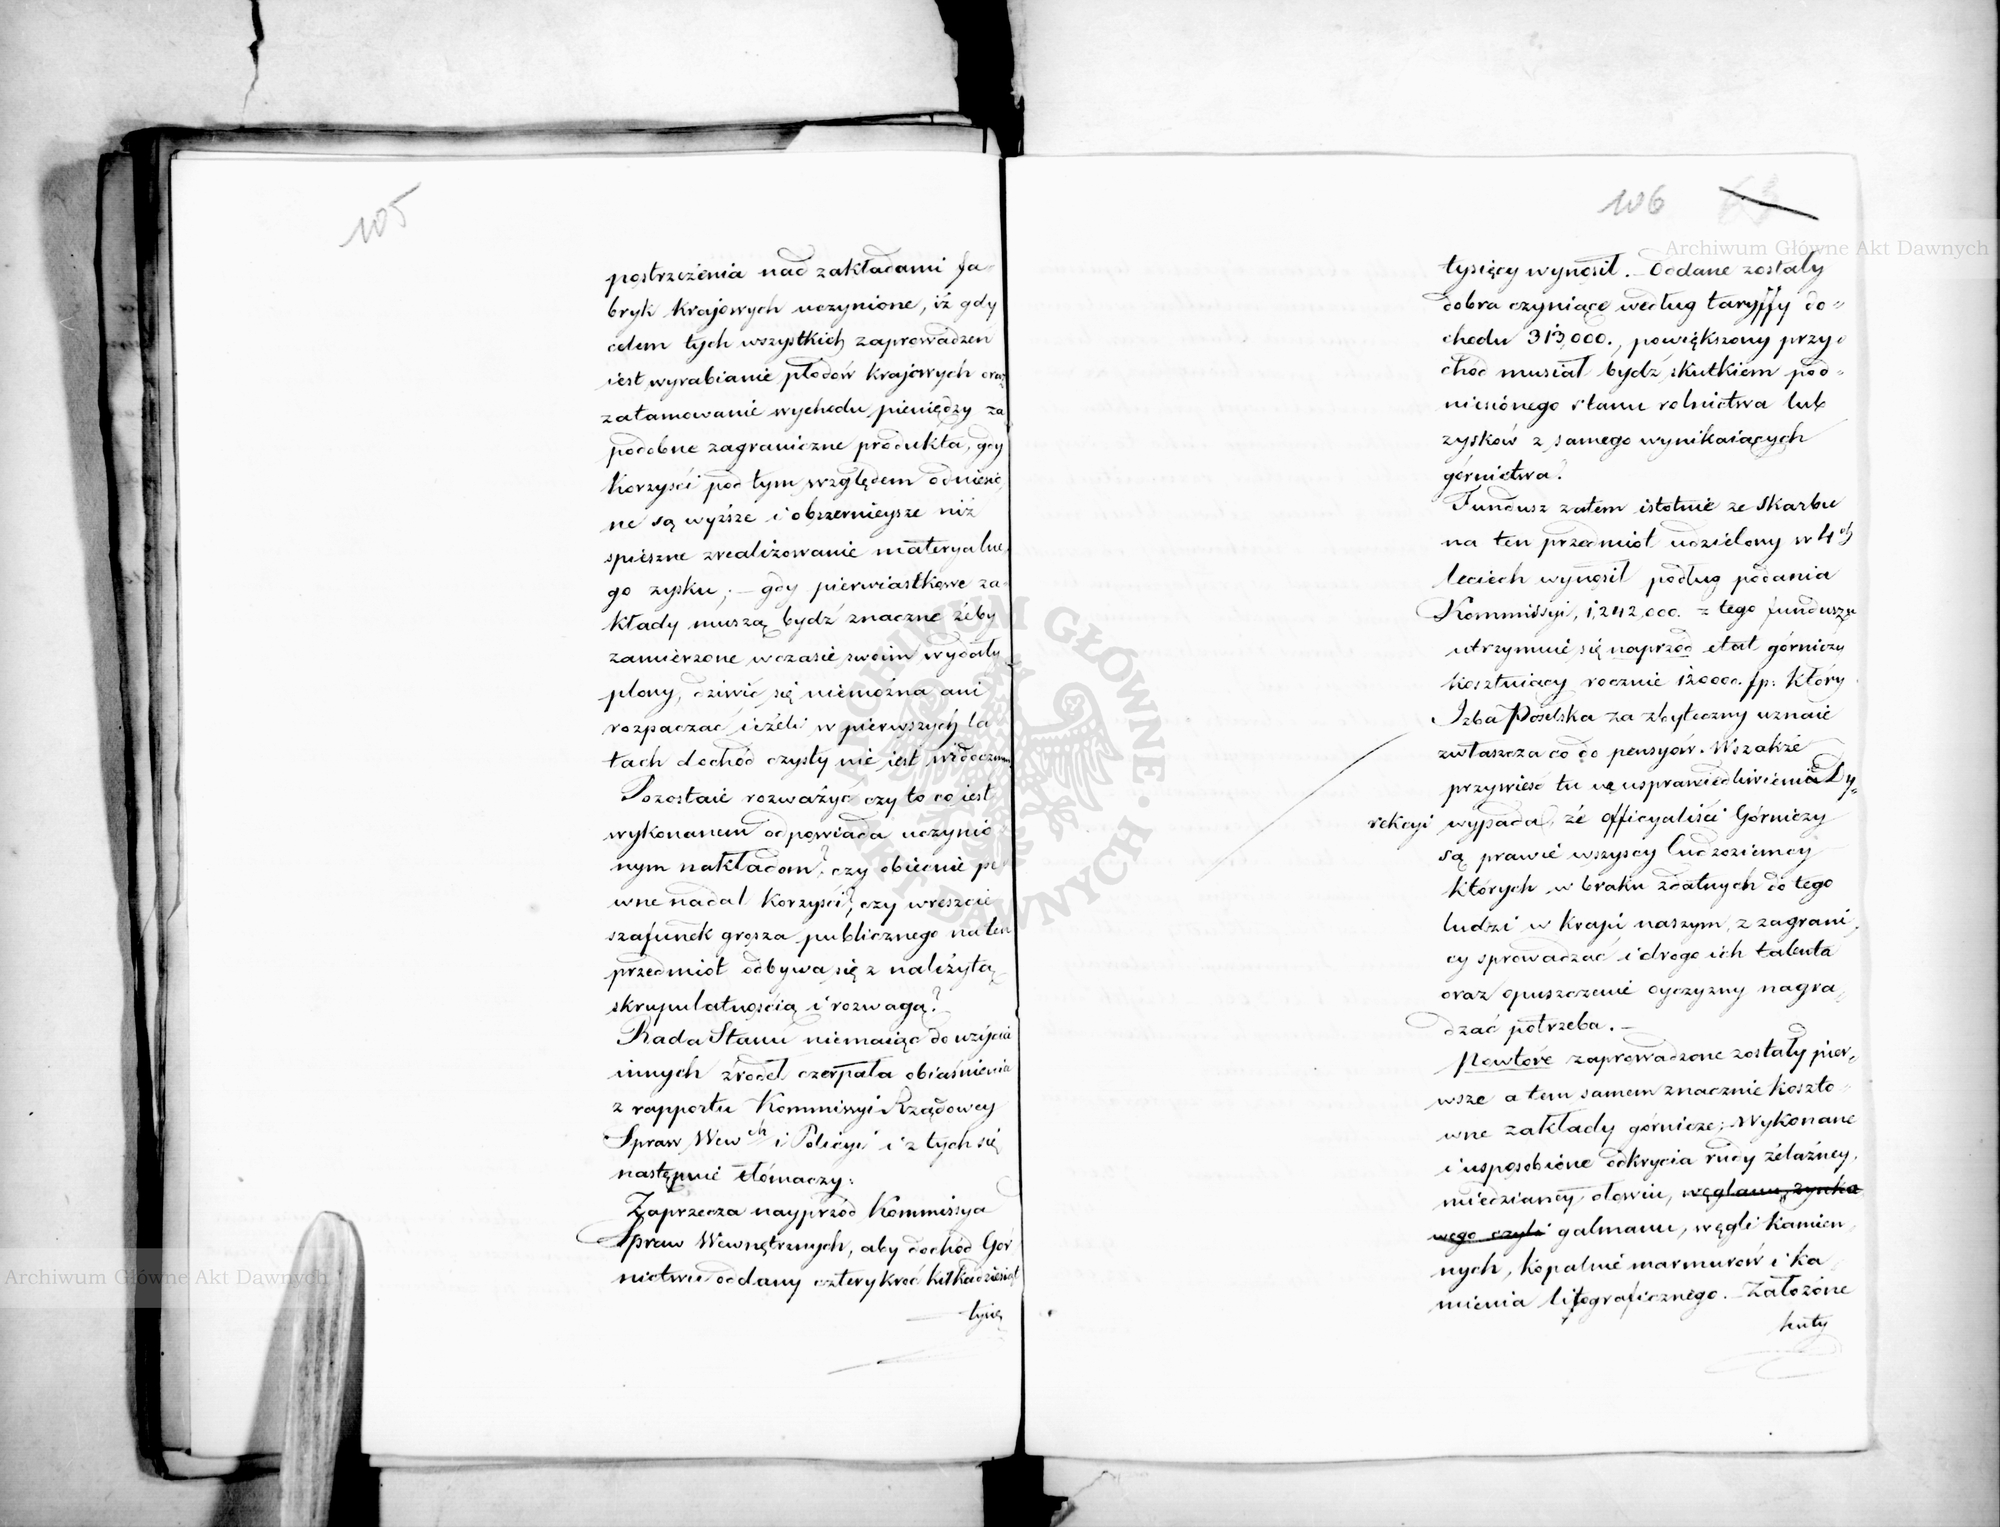 105
postrzeżenia nad zakładami fa-
bryk krajowych uczynione, iż gdy
celem tych wszystkich zaprowadzeń
iest wyrabianie płodów krajowych oraz
zatamowanie wychodu pieniędzy za
podobne zagraniczne produkta, gdy
korzyści pod tym względem odniesio,
ne są wyższe i obszernieysze niż
spieszne zrealizowanie materyalne,
go zysku; – gdy pierwiastkowe za-
kłady muszą bydź znaczne żeby
zamierzone w czasie swoim wydały
plony, dziwić się niemożna ani
rozpaczać ieżeli w pierwszych la
tach dochód czysty nie iest widoczny
Pozostaie rozważyć czy to co iest
wykonanem odpowiada uczynio
nym nakładom? czy obiecuie pe
wne nadal korzyści? czy wreszcie
szafunek grosza publicznego na ten
przedmiot odbywa się z należytą
skrupulatnością i rozwagą?
Rada Stanu niemaiąc do użycia
innych źrodeł czerpała obiaśnienia
z rapportu Kommissyi Rządowey
Spraw Wew ch i Policyi i z tych się
następnie tłómaczy:
Zaprzecza nayprzód Kommissya
Spraw Wewnętrznych, aby dochód Gór
nictwu oddany cztery kroć kilkadziesiąt
tysię
106 63
Archiwum Główne Akt Dawnych
tysięcy wynosił. – Oddane zostały
dobra czyniące według taryffy do-
chodu 313,000., powiększony przy
chód musiał bydź skutkiem pod-
niesionego stanu rolnictwa lub
zysków z samego wynikaiących
górnictwa?
Fundusz zatem istotnie ze Skarbu
na ten przedmiot udzielony w 4 ch
leciech wynosił podług podania
Kommissyi, 1,242,000. z tego funduszu
utrzymuie się naprzód etat górniczy
kosztuiący rocznie 120000. fp: który
Izba Poselska za zbyteczny uznaie
zwłaszcza co do pensyów. Wszakże
przywieść tu na usprawiedliwienie Dy-
rekcyi wypada, że officyaliści Górniczy
są prawie wszyscy Cudzoziemcy
których w braku zdatnych do tego
ludzi w kraju naszym, z zagrani,
cy sprowadzać i drogo ich talenta
oraz opuszczenie oyczyzny nagra,
dzać potrzeba. –
Powtóre zaprowadzone zostały pier,
wsze a tem samem znacznie koszto-
wne zakłady górnicze; Wykonane
i usposobione odkrycia rudy żelazney,
miedzianey ołowiu, węglanu zynko
wego czyli galmanu, węgli kamien,
nych, kopalnie marmurów i ka,
mienia litograficznego. – Założone
huty
Archiwum Główne Akt Dawnych
ARCHIWUM GŁÓWNE · AKT DAWNYCH ·